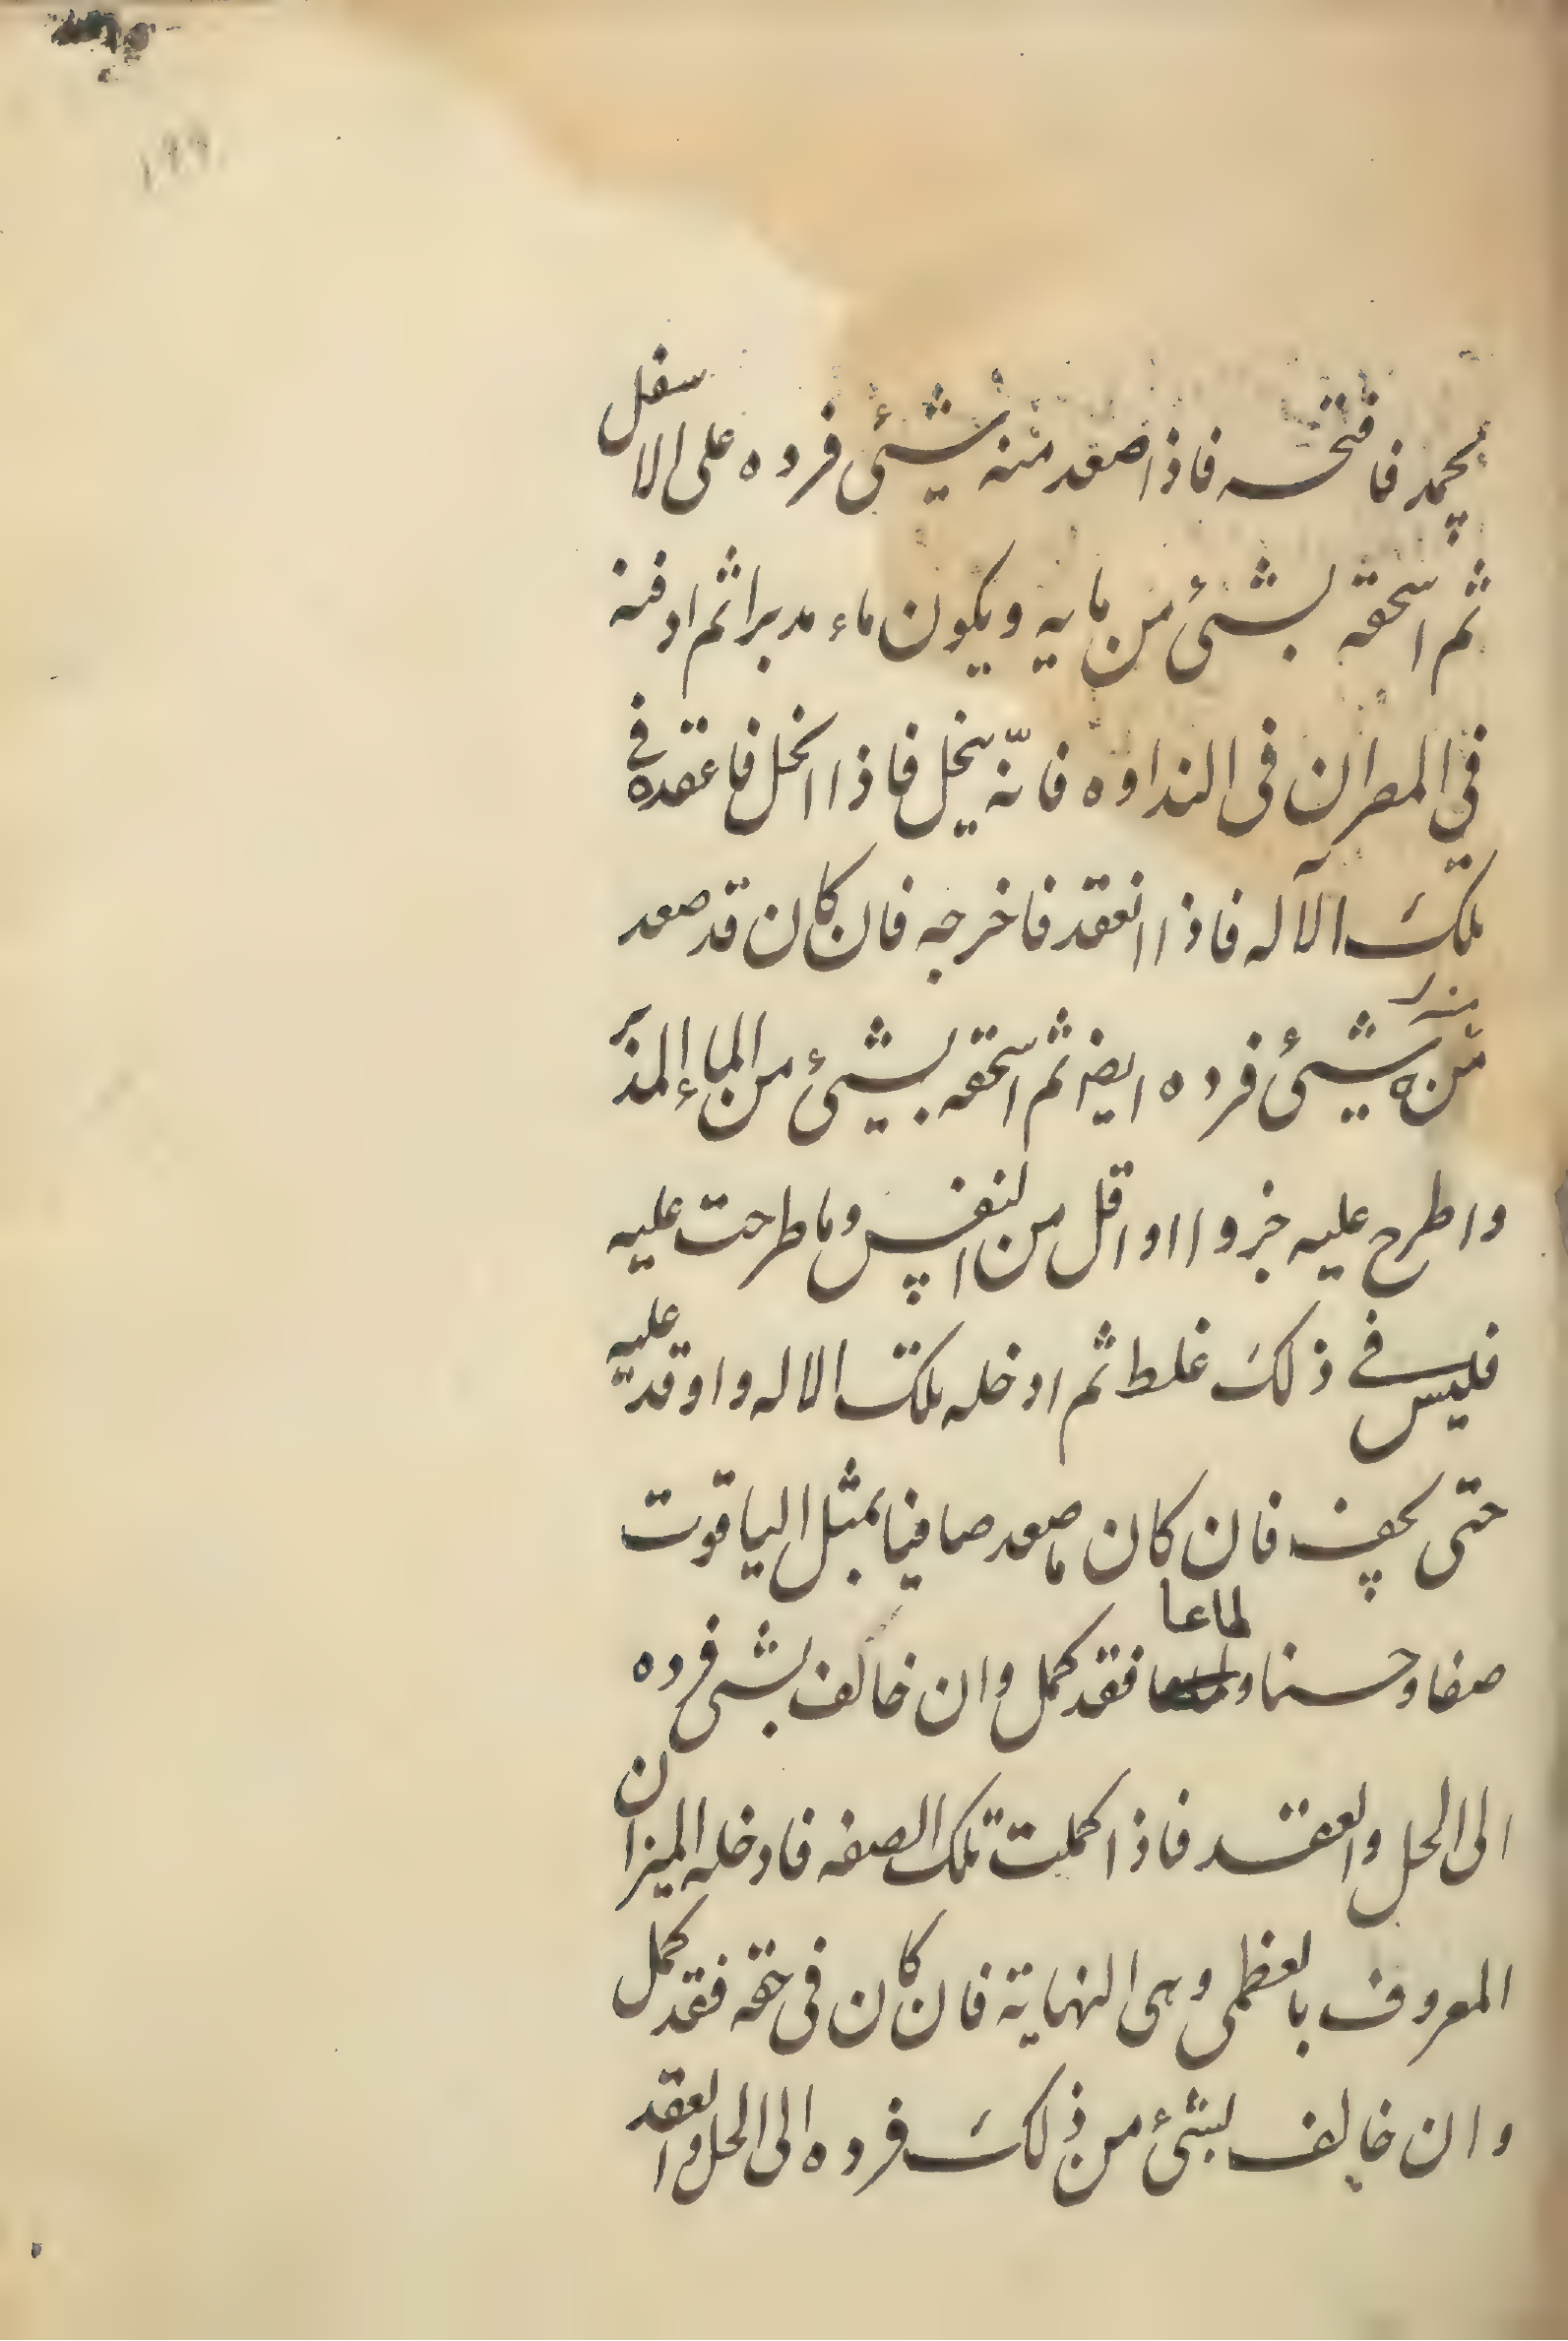 يجمد فافتحه فاذا صعد منه شيئ فرده على الاسفل
ثم اسحقه بشيئ من مايه ويكون ماء مدبرا ثم ادفنه
في المصران في النداوه فانّه ينحل فاذا انحل فاعقده في
تلك الآله فاذا انعقد فاخرجه فان كان قد صعد
منه شيئ فرده ايضا ثم اسحقه بشيئ من الماء المدبر
واطرح عليه جزوا او اقل من النفس وما طرحت عليه
فليس في ذلك غلط ثم ادخله تلك الاله واوقد عليه
حتى يجف فان كان ما صعد صافيا بمثل الياقوت
صفا وحسنا ولماعا فقد كمل وان خالف بشي فرده
الى الحل والعقد فاذا كملت تلك الصفه فادخله الميزان
المعروف بالعظمى وهى النهاية فان كان في حقه فقد كمل
وان خالف لشئ من ذلك فرده الى الحل والعقد